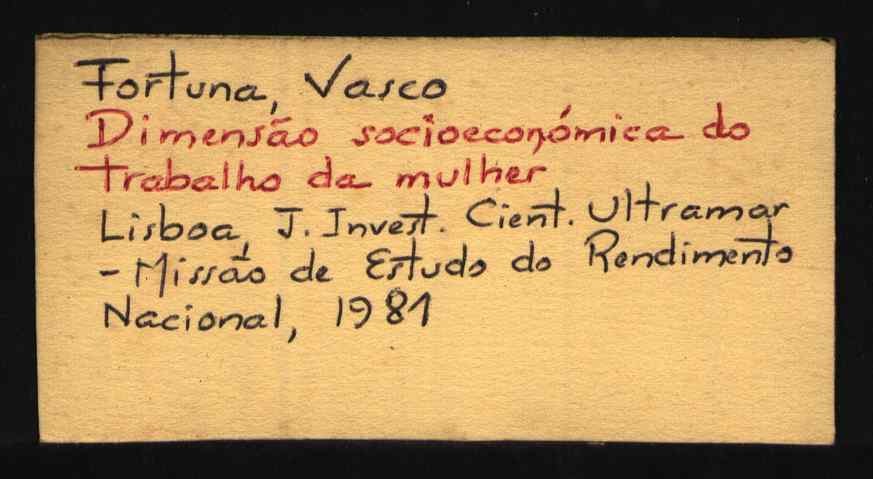 Fortuna, Vasco
Dimensão socioeconómica do
trabalho da mulher
Lisboa, J. Invest. Cient. Ultramar
- Missão de Estudo do Rendimento
Nacional, 1981